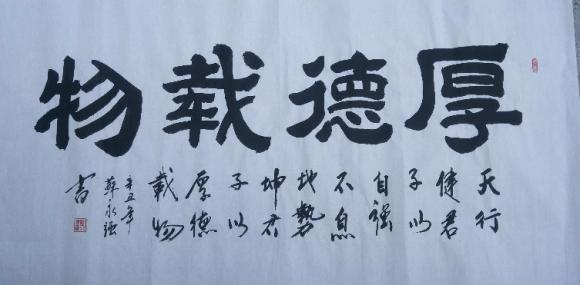 厚德载物
天行
健君
子以
自强
不息
地勢
坤君
子以
厚德
載物
辛丑年
薛永强
书